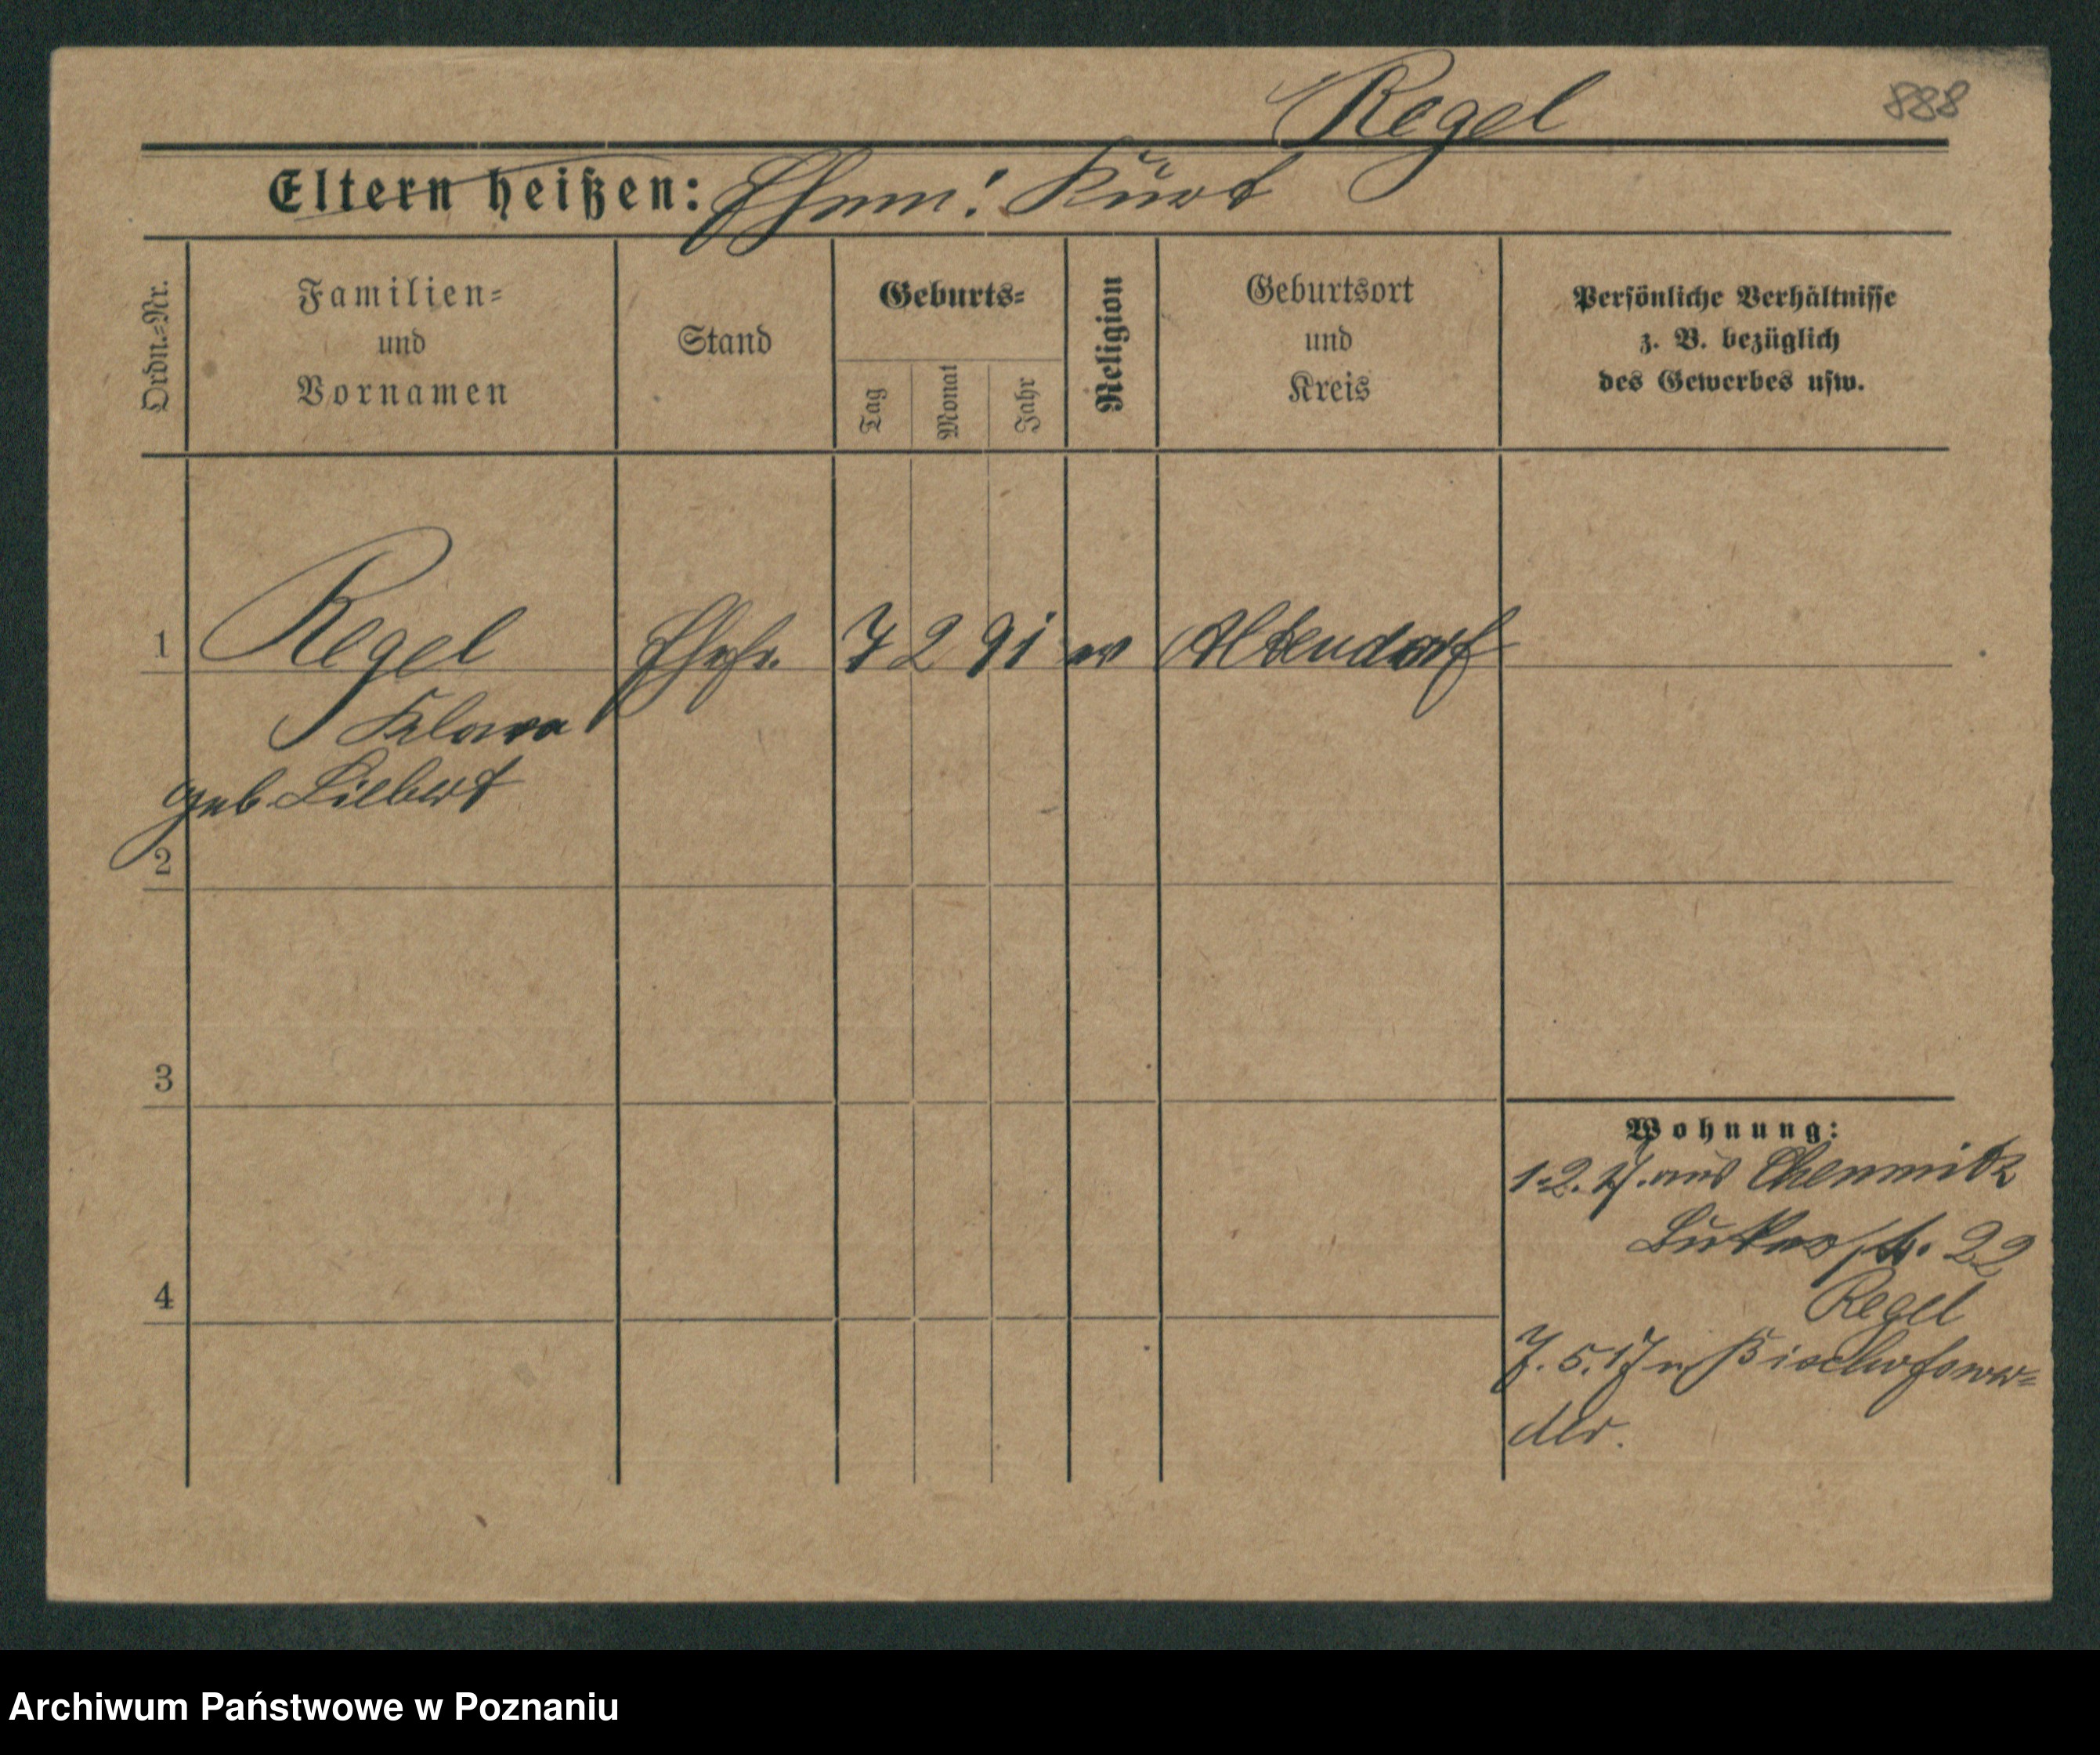 Regel
888
Eltern heißen: Ehem: Kurt
Ordn.=Nr.
Familien=
und
Vornamen
Stand
Geburts=
Tag
Monat
Jahr
Religion
Geburtsort
und
Kreis
Persönliche Verhältnisse
z. B. bezüglich
des Gewerbes usw.
1 Regel Ehefr. 7 2 91 ev Altendorf
Klara
geb. Liebert
2
3
4
Wohnung:
1.2.17. aus Chemnitz
Lukasstr. 22
Regel
7.5.17 n Bischofswer=
der.
Archiwum Państwowe w Poznaniu